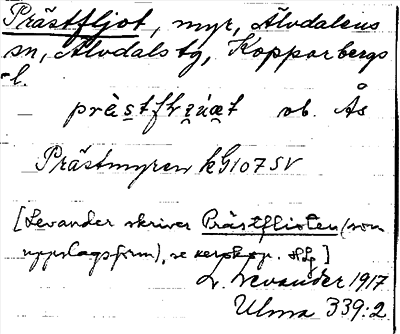 Prästfljot, myr, Älvdalens
sn, Älvdals tg, Kopparbergs
-l.
ob. Ås
Prästmyren kG107SV
[Levander skriver Prästflioten (som
uppslagsform), se
L. Levander 1917
Ulma 339:2